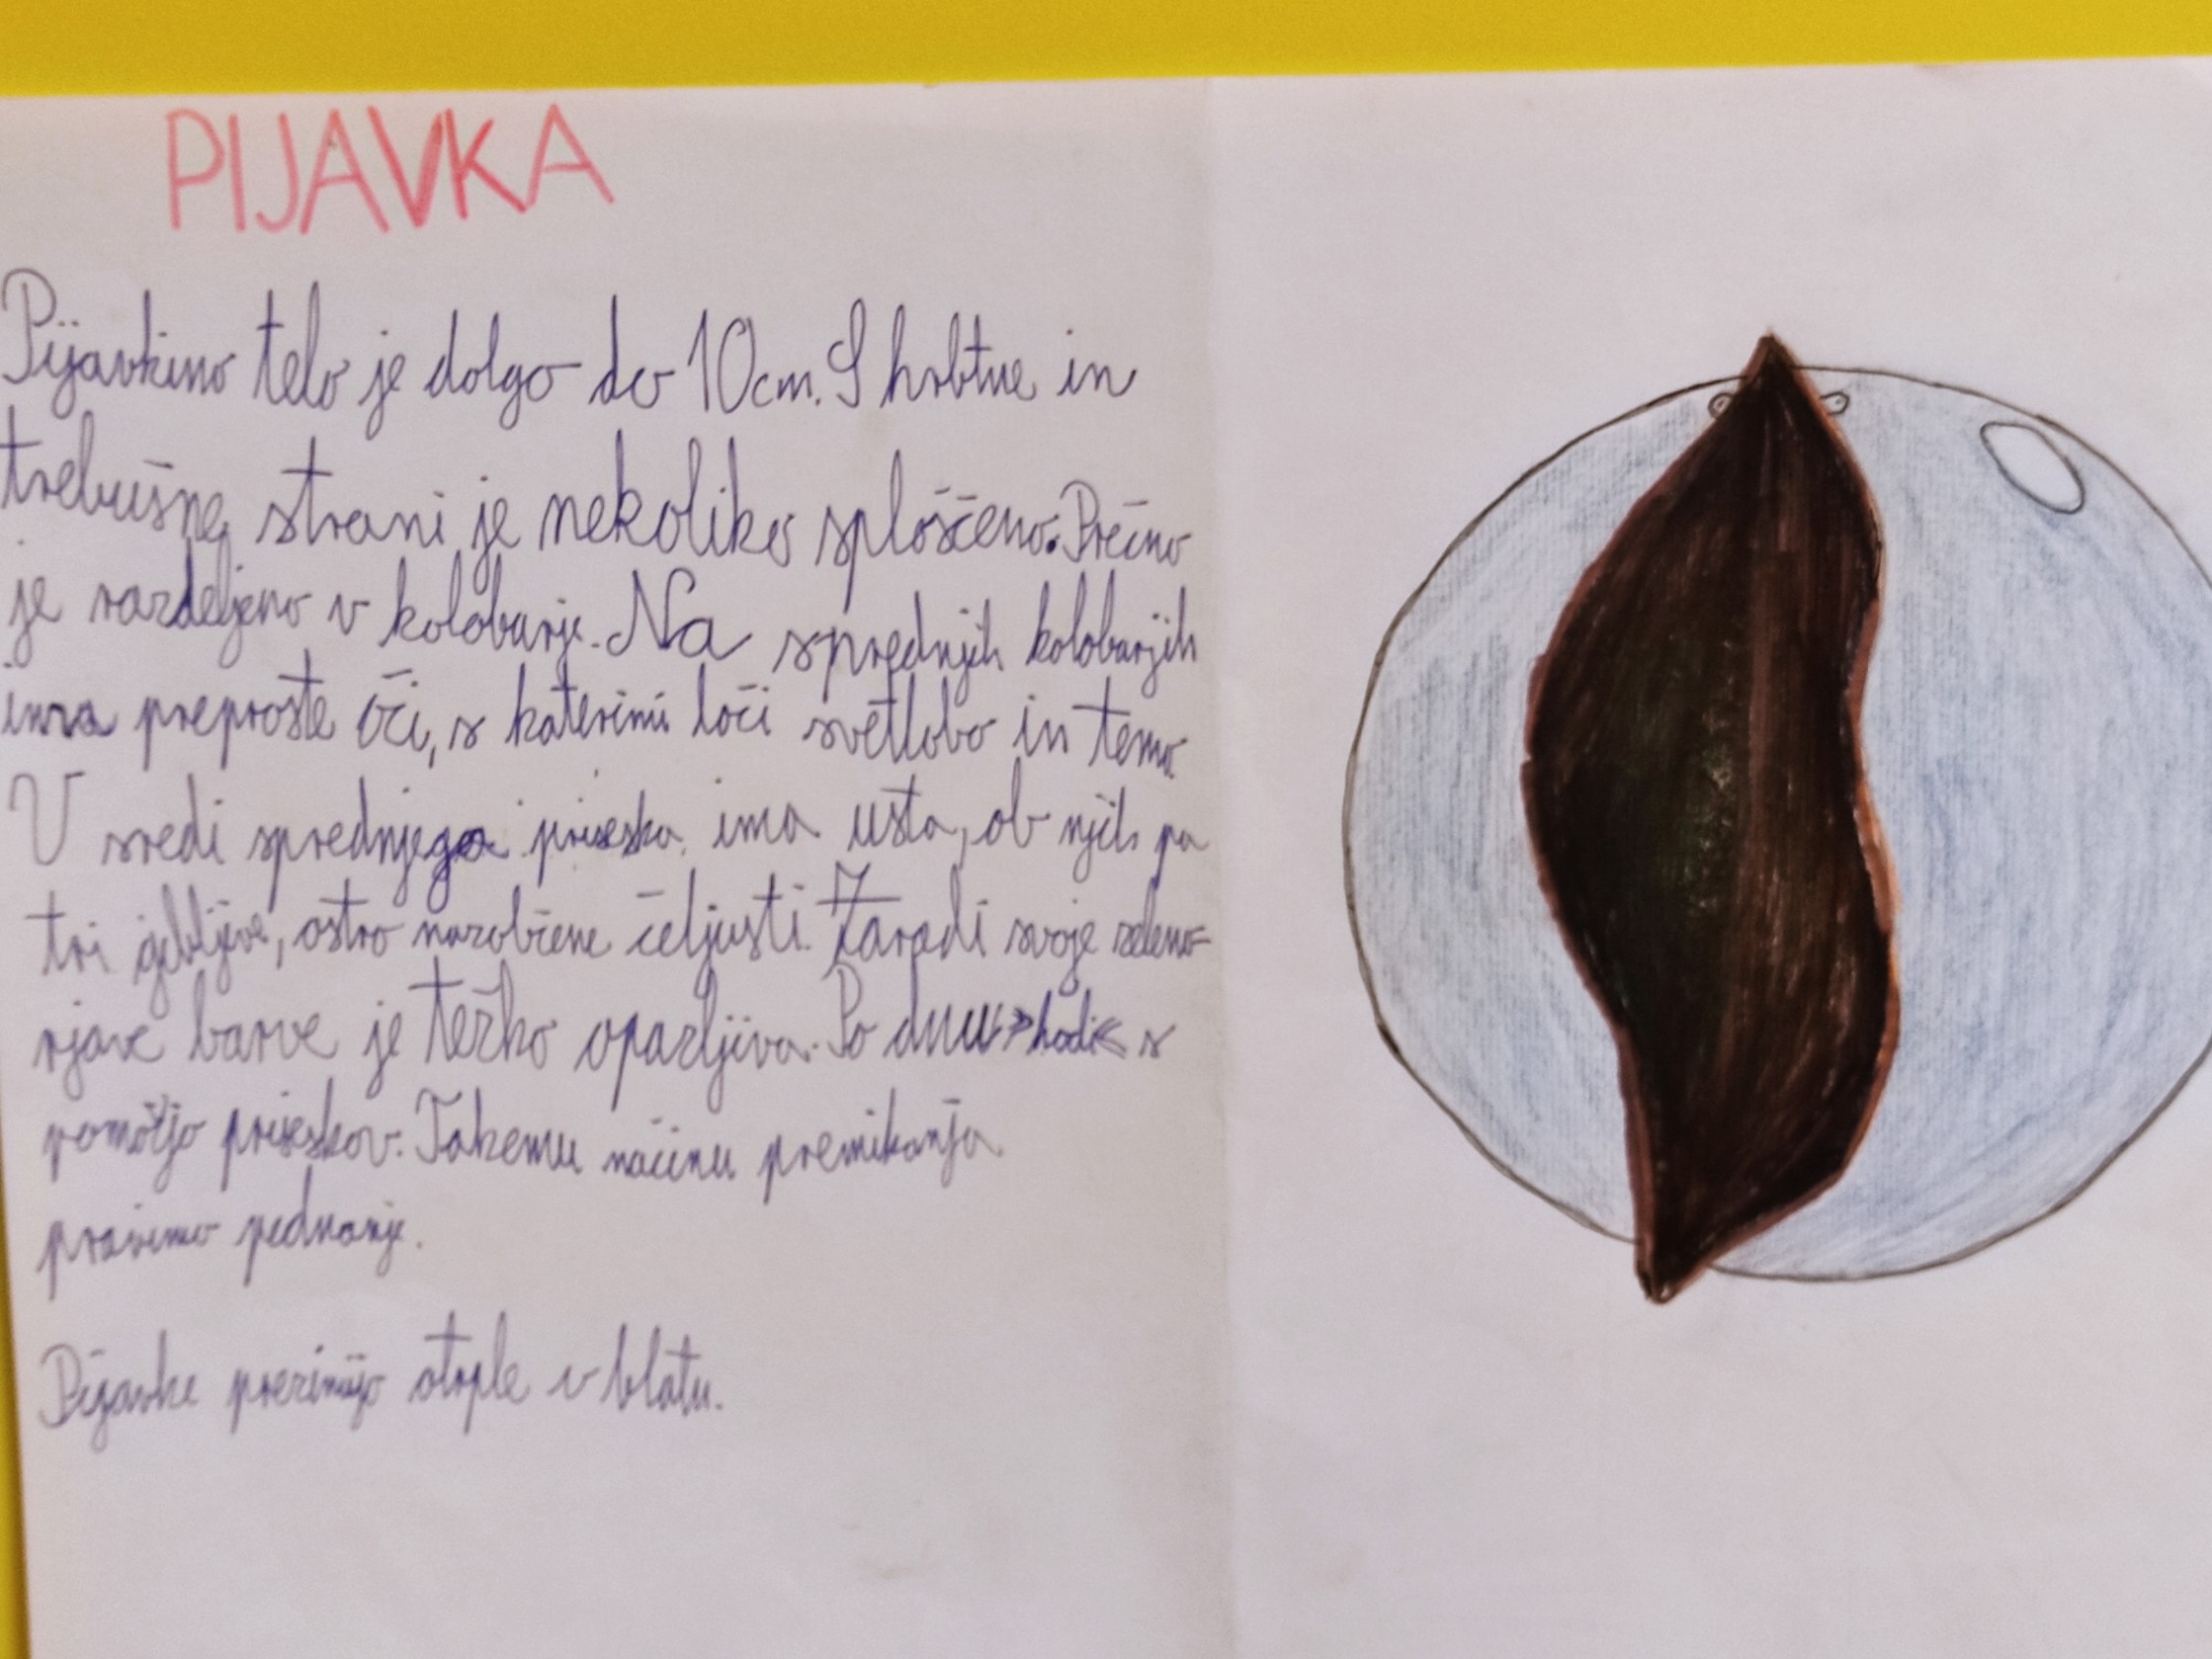 PIJAVKA
Pijavkino telo je dolgo do 10cm. S hrbtne in
trebušne strani je nekoliko sploščeno. Prečno
je razdeljeno v kolobarje. Na sprednjih kolobarjih
ima preproste oči, s katerimi loči svetlobo in temo.
V sredi sprednjega priseska ima usta, ob njih pa
tri gibljive, ostro nazobčene čeljusti. Zaradi svoje zeleno-
rjave barve je težko opazljiva. Po dnu »hodi« s
pomočjo priseskov. Takemu načinu premikanja
pravimo pedenanje.
Pijavke prezimijo otrple v blatu.